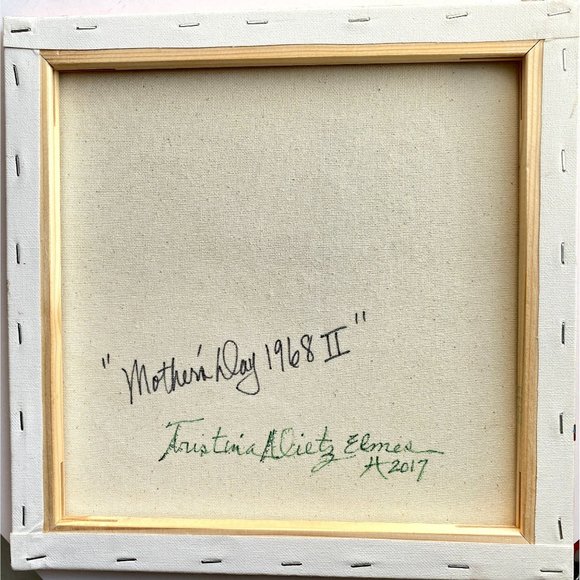 "Mother's Day 1968 II"
Tristina Dietz Elmes
2017